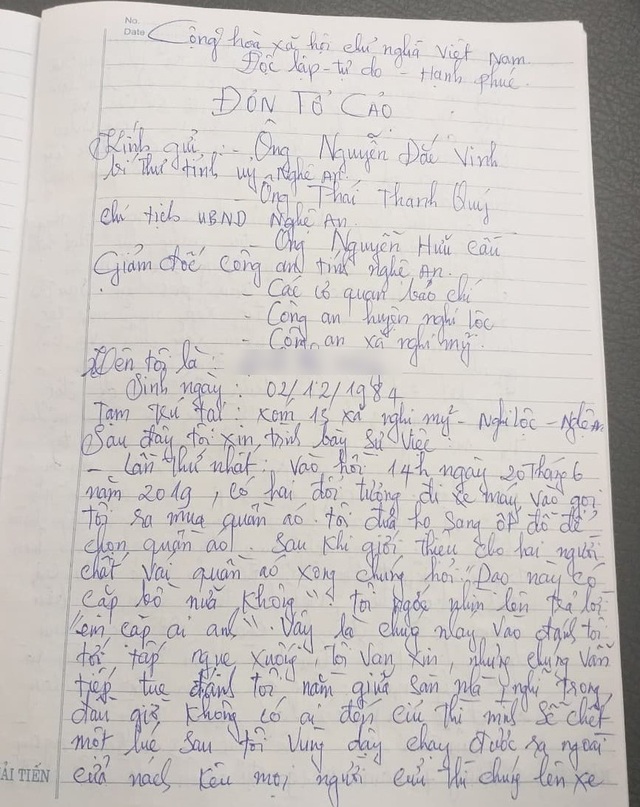 No.
Date
Cộng hoà xã hội chủ nghĩa Việt Nam
Độc lập - tự do - Hạnh phúc
ĐƠN TỐ CÁO
Kính gửi : - Ông Nguyễn Đắc Vinh
bí thư tỉnh uỷ Nghệ An.
- Ông Thái Thanh Quý
chủ tịch UBND Nghệ An.
- Ông Nguyễn Hữu Cầu
Giám đốc công an tỉnh nghệ An.
- Các cơ quan báo chí
- Công an huyện nghi lộc
- Công an xã nghi mỹ.
Tên tôi là :
Sinh ngày : 02/12/1984
Tạm trú tại : xóm 15 xã nghi mỹ - Nghi Lộc - Nghệ An
Sau đây tôi xin trình bày sự việc
- Lần thứ nhất : vào hồi 14h ngày 20 tháng 6
năm 2019, có hai đối tượng đi xe máy vào gọi
tôi ra mua quần áo. tôi đưa họ sang ốt đồ để
chọn quần áo. Sau khi giới thiệu cho hai người
chất vải quần áo xong chúng hỏi : "Dao này có
cặp bồ nữa không". tôi ngước nhìn lên trả lời
"em cặp ai anh". Vậy là chúng nhảy vào đánh tôi
tới tấp ngục xuống, tôi van xin, nhưng chúng vẫn
tiếp tục đánh tôi nằm giữa sàn nhà, nghĩ trong
đầu giờ không có ai đến cứu thì mình sẽ chết
một lúc sau tôi vùng dậy chạy được ra ngoài
cửa nách kêu mọi người cứu thì chúng lên xe
ẢI TIẾN